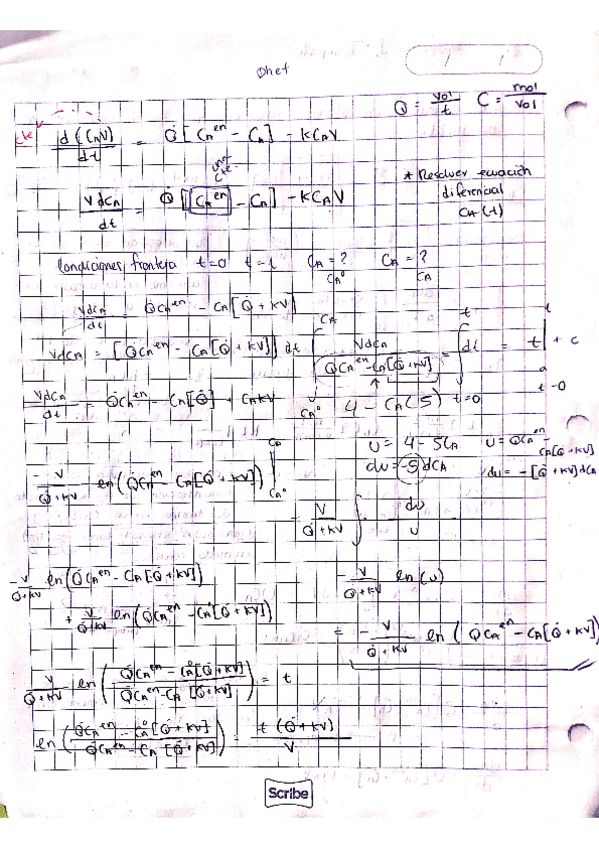 Dhef
Q̇ = vol/t    C = mol/vol
cte  d(C_A V)/dt = Q̇[C_A^en - C_A] - KC_A V
cte
V dC_A/dt = Q̇[[C_A^en] - C_A] - KC_A V
* Resolver ecuación
diferencial
C_A(t)
Condiciones frontera  t=0  t=t  C_A=?  C_A=?
C_A°  C_A
V dC_A/dt = Q̇C_A^en - C_A[Q̇ + KV]
V dC_A = [Q̇C_A^en - C_A[Q̇ + KV]] dt
∫_{C_A°}^{C_A} V dC_A/(Q̇C_A^en - C_A[Q̇ + KV]) = ∫_{t=0}^{t} dt = t| + C
t=0
V dC_A/dt = Q̇C_A^en - C_A[Q̇] + C_A KV
4 - C_A(5)
u = 4 - 5C_A    u = Q̇C_A^en - C_A[Q̇ + KV]
du = -5 dC_A    du = -[Q̇ + KV] dC_A
-V/(Q̇ + KV) ln(Q̇C_A^en - C_A[Q̇ + KV]) |_{C_A°}^{C_A}
- V/(Q̇ + KV) ∫ du/u
-V/(Q̇ + KV) ln(Q̇C_A^en - C_A[Q̇ + KV])
-V/(Q̇ + KV) ln(u)
+ V/(Q̇ + KV) ln(Q̇C_A^en - C_A°[Q̇ + KV])
= -V/(Q̇ + KV) ln(Q̇C_A^en - C_A[Q̇ + KV])
V/(Q̇ + KV) ln((Q̇C_A^en - C_A°[Q̇ + KV])/(Q̇C_A^en - C_A[Q̇ + KV])) = t
ln((Q̇C_A^en - C_A°[Q̇ + KV])/(Q̇C_A^en - C_A[Q̇ + KV])) = t(Q̇ + KV)/V
Scribe